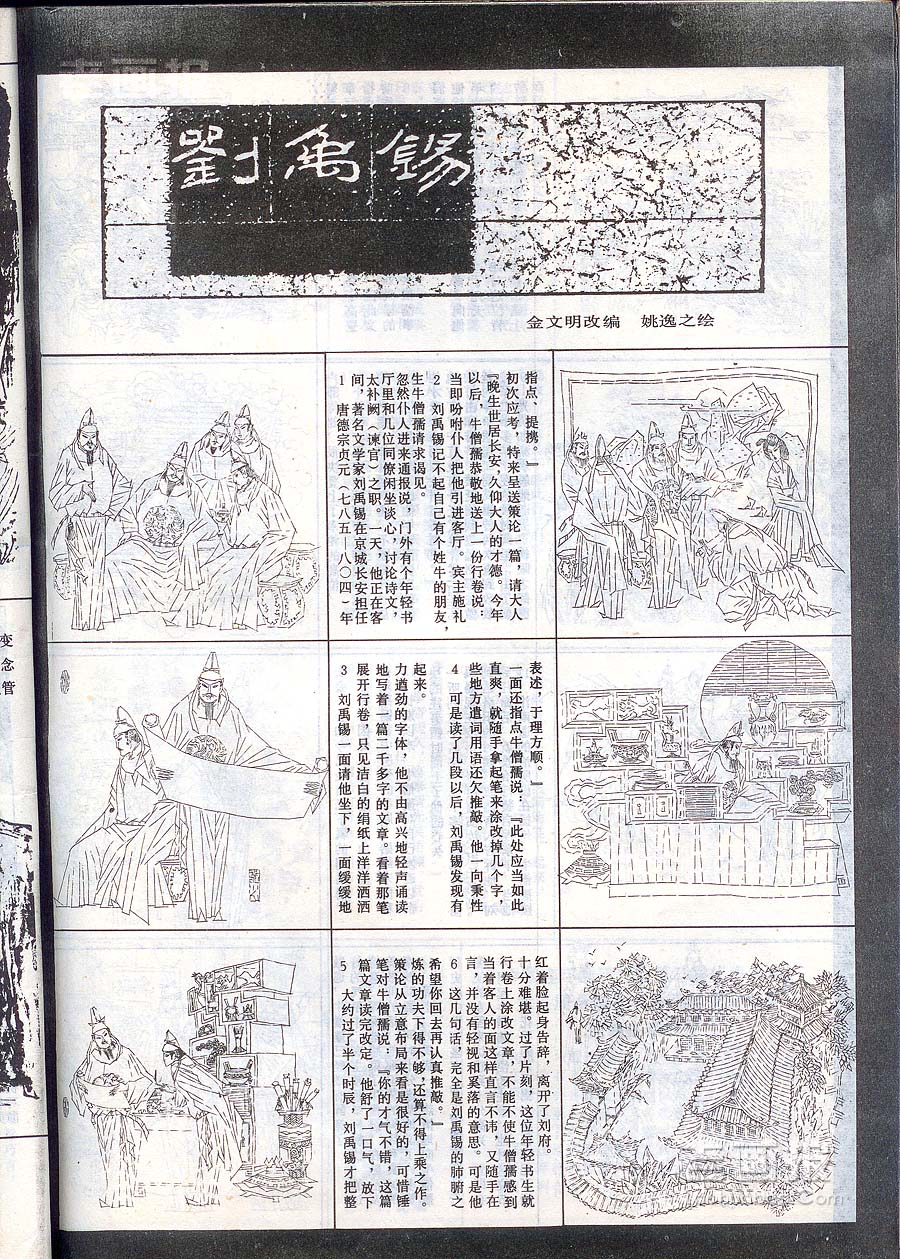 劉禹錫
金文明改编　姚逸之绘
1　唐德宗贞元（七八五—八〇四）年
间，著名文学家刘禹锡在京城长安担任
太补阙（谏官）之职。一天，他正在客
厅里和几位同僚闲坐谈心，讨论诗文，
忽然仆人进来通报说，门外有个年轻书
生牛僧孺请求谒见。
2　刘禹锡记不起自己有个姓牛的朋友，
当即吩咐仆人把他引进客厅。宾主施礼
以后，牛僧孺恭敬地送上一份行卷说：
『晚生世居长安，久仰大人的才德。今年
初次应考，特来呈送策论一篇，请大人
指点、提携。』
3　刘禹锡一面请他坐下，一面缓缓地
展开行卷，只见洁白的绢纸上洋洋洒洒
地写着一篇二千多字的文章。看着那笔
力遒劲的字体，他不由高兴地轻声诵读
起来。
4　可是读了几段以后，刘禹锡发现有
些地方遣词用语还欠推敲。他一向秉性
直爽，就随手拿起笔来涂改掉几个字，
一面还指点牛僧孺说：『此处应当如此
表述，于理方顺。』
5　大约过了半个时辰，刘禹锡才把整
篇文章读完改定。他舒了一口气，放下
笔对牛僧孺说：『你的才气不错，这篇
策论从立意布局来看是很好的，可惜锤
炼的功夫下得不够，还算不得上乘之作。
希望你回去再认真推敲。』
6　这几句话，完全是刘禹锡的肺腑之
言，并没有轻视和奚落的意思。可是他
当着客人的面这样直言不讳，又随手在
行卷上涂改文章，不能不使牛僧孺感到
十分难堪。过了片刻，这位年轻书生就
红着脸起身告辞，离开了刘府。
变
念
管